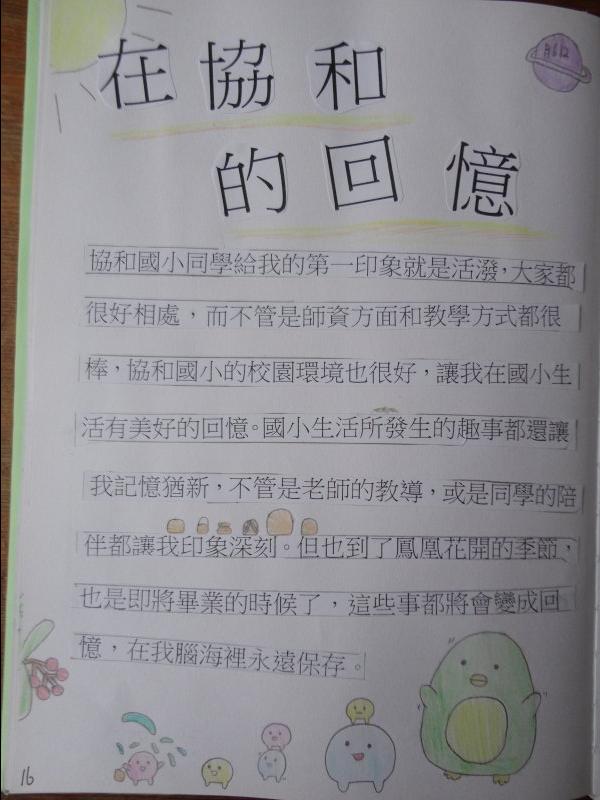 在協和
的回憶
協和國小同學給我的第一印象就是活潑,大家都
很好相處,而不管是師資方面和教學方式都很
棒,協和國小的校園環境也很好,讓我在國小生
活有美好的回憶。國小生活所發生的趣事都還讓
我記憶猶新,不管是老師的教導,或是同學的陪
伴都讓我印象深刻。但也到了鳳凰花開的季節,
也是即將畢業的時候了,這些事都將會變成回
憶,在我腦海裡永遠保存。
16